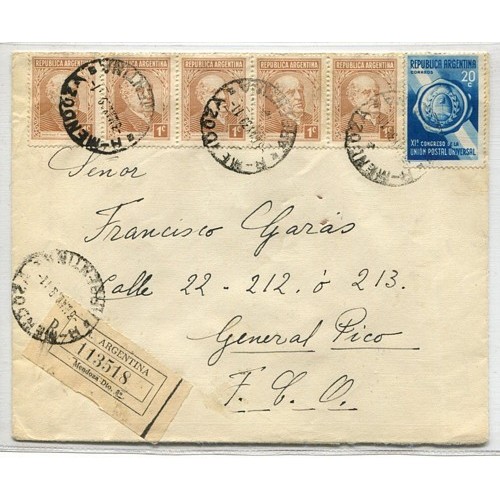 REPUBLICA ARGENTINA
1c
REPUBLICA ARGENTINA
1c
REPUBLICA ARGENTINA
1c
REPUBLICA ARGENTINA
1c
REPUBLICA ARGENTINA
1c
REPUBLICA ARGENTINA
CORREOS
20
c
XI º CONGRESO DE LA
UNION POSTAL UNIVERSAL
R-MENDOZA
ARGENTINA
R-MENDOZA
ARGENTINA
R-MENDOZA
Señor
Francisco Garás
Calle 22 - 212 ó 213.
General Pico
F. C. O.
R-MENDOZA
ARGENTINA
R. ARGENTINA
113518
Mendoza-Dto. 8º